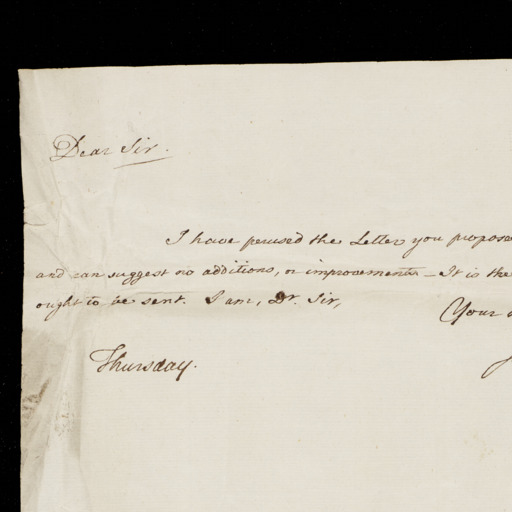 Dear Sir.
I have perused the Letter you propose
and can suggest no additions, or improvements — It is the
ought to be sent. I am, Dr. Sir,
Your
Thursday.